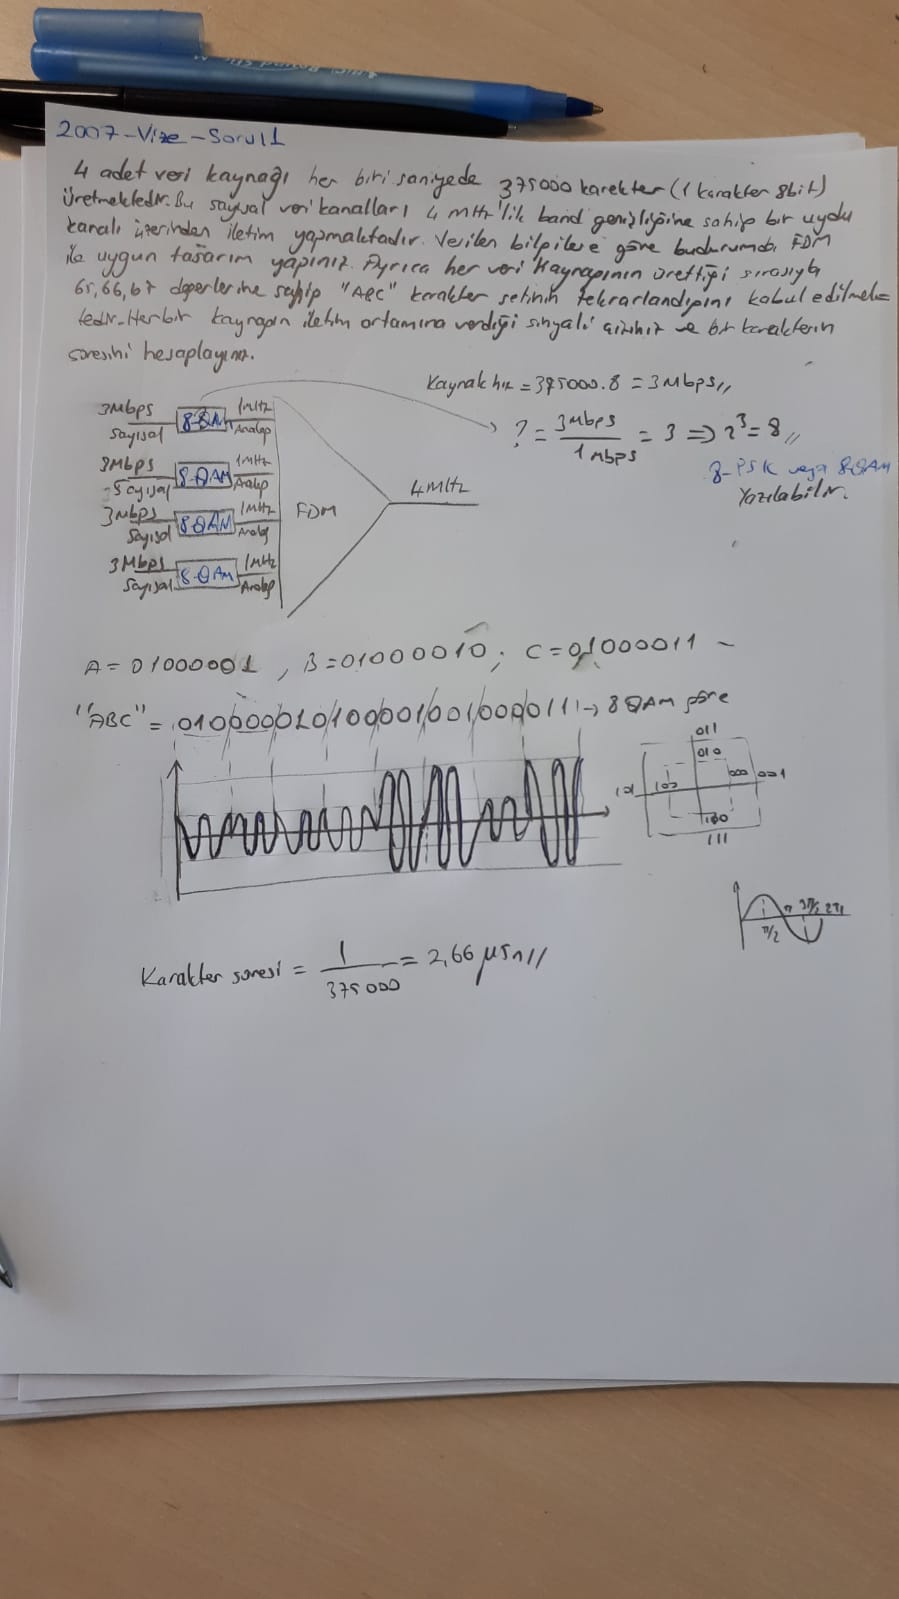 2007-Vize-Soru11
4 adet veri kaynağı her biri saniyede 375000 karekter (1 karakter 8bit)
üretmektedir. Bu sayısal veri kanalları 4 MHz'lik band genişliğine sahip bir uydu
kanalı üzerinden iletim yapmaktadır. Verilen bilgilere göre bu durumda FDM
ile uygun tasarım yapınız. Ayrıca her veri kaynağının ürettiği sırasıyla
65,66,67 değerlerine sahip "ABC" karakter setinin tekrarlandığını kabul edilmek-
tedir. Her bir kaynağın iletim ortamına verdiği sinyali çiziniz ve bir karakterin
süresini hesaplayınız.
Kaynak hız = 375000.8 = 3Mbps//
3Mbps 8-QAM 1MHz
Sayısal Analog
? = 3Mbps / 1Mbps = 3 => 2^3 = 8//
3Mbps 8-QAM 1MHz
Sayısal Analog
8-PSK veya 8-QAM
Yazılabilir.
4MHz
3Mbps 8QAM 1MHz
Sayısal Analog
FDM
3Mbps 8-QAM 1MHz
Sayısal Analog
A = 01000001, B = 01000010, C = 01000011
"ABC" = 010000010100001001000011 -> 8QAM göre
011
010
101 100 000 001
110
111
π/2 π 3π/2 2π
Karakter süresi = 1 / 375000 = 2,66 µsn//